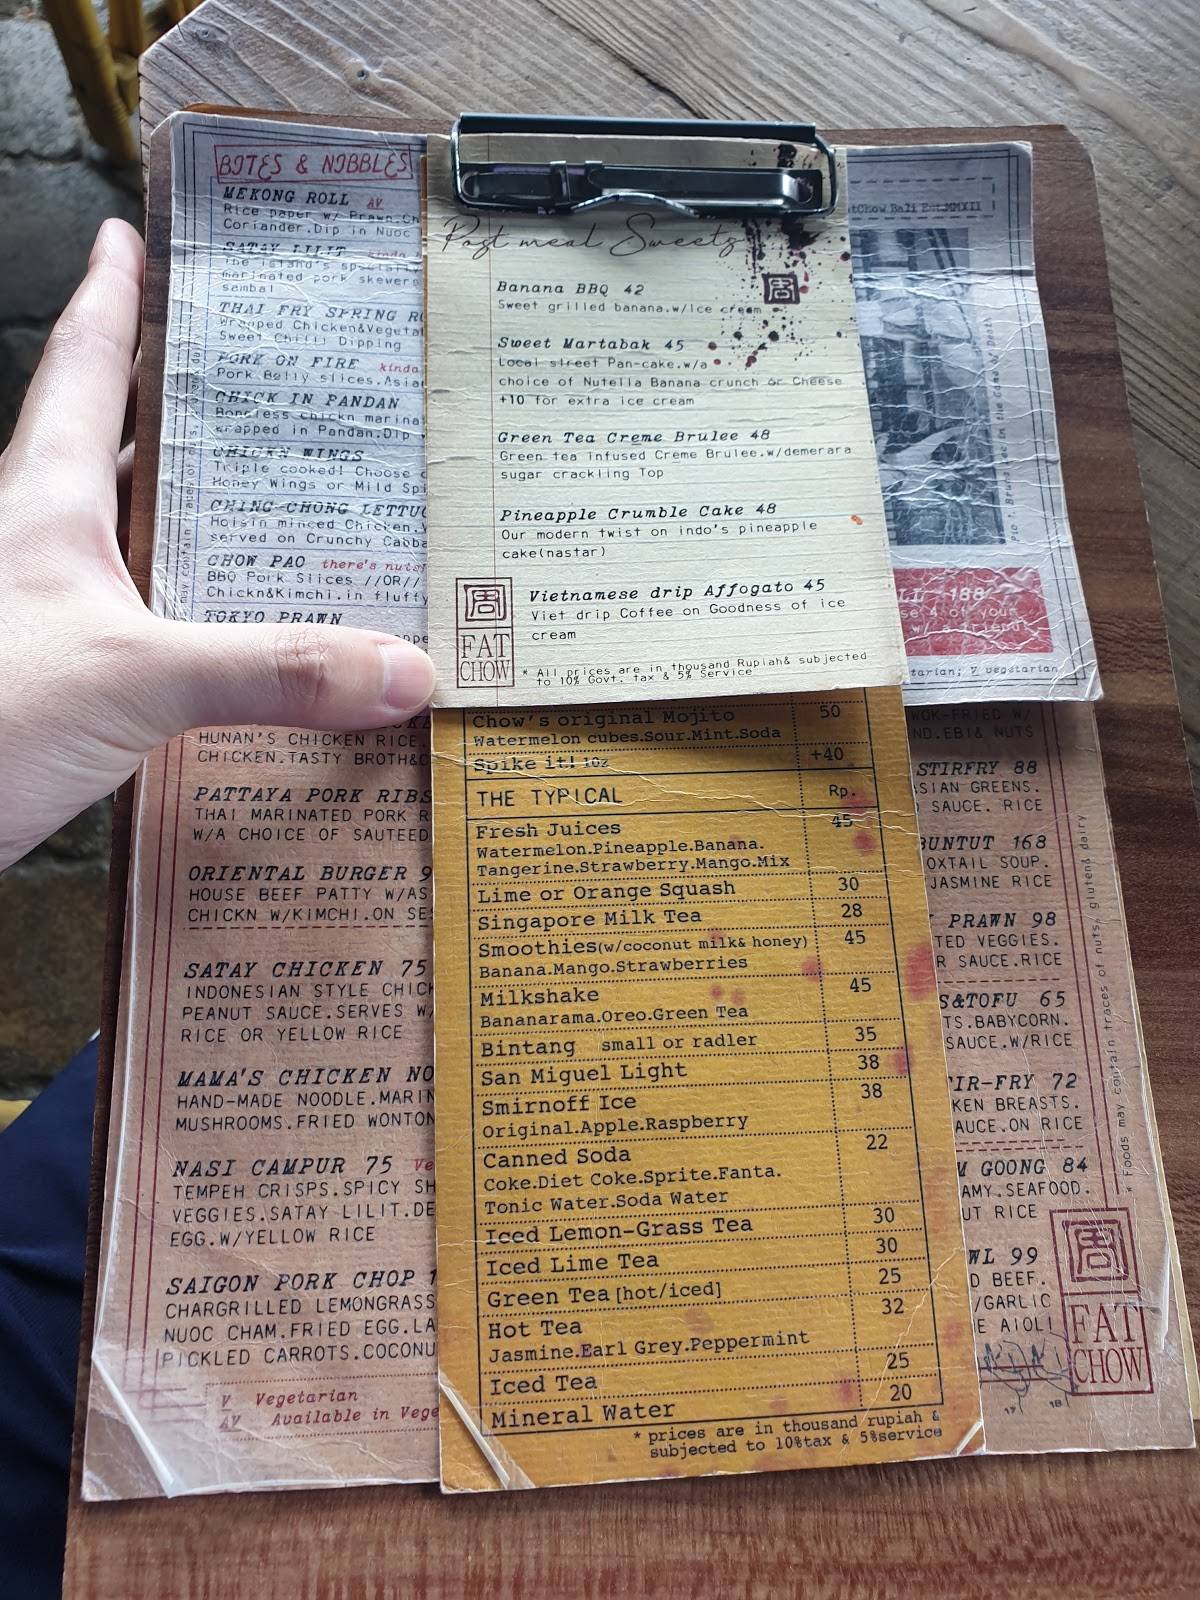 BITES & NIBBLES
MEKONG ROLL AV
Rice paper w/ Prawn.Ch
Coriander.Dip in Nuoc
SATAY LILIT kinda
The island's specialty
marinated pork skewers
sambal
THAI FRY SPRING RO
Wrapped Chicken&Vegeta
Sweet Chilli Dipping
PORK ON FIRE kinda
Pork Belly slices.Asian
CHICK IN PANDAN
Boneless chickn marina
wrapped in Pandan.Dip
CHICKN WINGS
Triple cooked! Choose
Honey Wings or Mild Spi
CHING-CHONG LETTUC
Hoisin minced Chicken.
served on Crunchy Cabba
CHOW PAO there's nuts!
BBQ Pork Slices //OR//
Chickn&Kimchi.in fluffy
TOKYO PRAWN
Post meal Sweets
周
Banana BBQ 42
Sweet grilled banana.w/ice cream
Sweet Martabak 45
Local street Pan-cake.w/a
choice of Nutella Banana crunch or Cheese
+10 for extra ice cream
Green Tea Creme Brulee 48
Green tea infused Creme Brulee.w/demerara
sugar crackling Top
Pineapple Crumble Cake 48
Our modern twist on indo's pineapple
cake(nastar)
Vietnamese drip Affogato 45
Viet drip Coffee on Goodness of ice
cream
周
FAT
CHOW
* All prices are in thousand Rupiah& subjected
to 10% Govt. tax & 5% Service
atChow Bali Est.MMXII
188
se 4 of your
w/ a friend
tarian; V vegetarian
HUNAN'S CHICKEN RICE.
CHICKEN.TASTY BROTH&C
PATTAYA PORK RIBS
THAI MARINATED PORK R
W/A CHOICE OF SAUTEED
ORIENTAL BURGER 9
HOUSE BEEF PATTY W/AS
CHICKN W/KIMCHI.ON SES
SATAY CHICKEN 75
INDONESIAN STYLE CHICK
PEANUT SAUCE.SERVES W/
RICE OR YELLOW RICE
MAMA'S CHICKEN NO
HAND-MADE NOODLE.MARIN
MUSHROOMS.FRIED WONTON
NASI CAMPUR 75 Ve
TEMPEH CRISPS.SPICY SH
VEGGIES.SATAY LILIT.DE
EGG.W/YELLOW RICE
SAIGON PORK CHOP 1
CHARGRILLED LEMONGRASS
NUOC CHAM.FRIED EGG.LA
PICKLED CARROTS.COCONU
V Vegetarian
AV Available in Vege
Chow's original Mojito 50
Watermelon cubes.Sour.Mint.Soda
Spike it! 1oz +40
THE TYPICAL Rp.
Fresh Juices 45
Watermelon.Pineapple.Banana.
Tangerine.Strawberry.Mango.Mix
Lime or Orange Squash 30
Singapore Milk Tea 28
Smoothies(w/coconut milk& honey) 45
Banana.Mango.Strawberries
Milkshake 45
Bananarama.Oreo.Green Tea
Bintang small or radler 35
San Miguel Light 38
Smirnoff Ice 38
Original.Apple.Raspberry
Canned Soda 22
Coke.Diet Coke.Sprite.Fanta.
Tonic Water.Soda Water
Iced Lemon-Grass Tea 30
Iced Lime Tea 30
Green Tea [hot/iced] 25
Hot Tea 32
Jasmine.Earl Grey.Peppermint
Iced Tea 25
Mineral Water 20
* prices are in thousand rupiah &
subjected to 10%tax & 5%service
WOK-FRIED W/
ND.EBI& NUTS
STIRFRY 88
SIAN GREENS.
SAUCE. RICE
BUNTUT 168
OXTAIL SOUP.
JASMINE RICE
PRAWN 98
TED VEGGIES.
R SAUCE.RICE
S&TOFU 65
TS.BABYCORN.
SAUCE.W/RICE
IR-FRY 72
KEN BREASTS.
AUCE.ON RICE
M GOONG 84
AMY.SEAFOOD.
UT RICE
WL 99
D BEEF.
/GARLIC
E AIOLI
* Foods may contain traces of nuts, gluten& dairy
周
FAT
CHOW
17 18